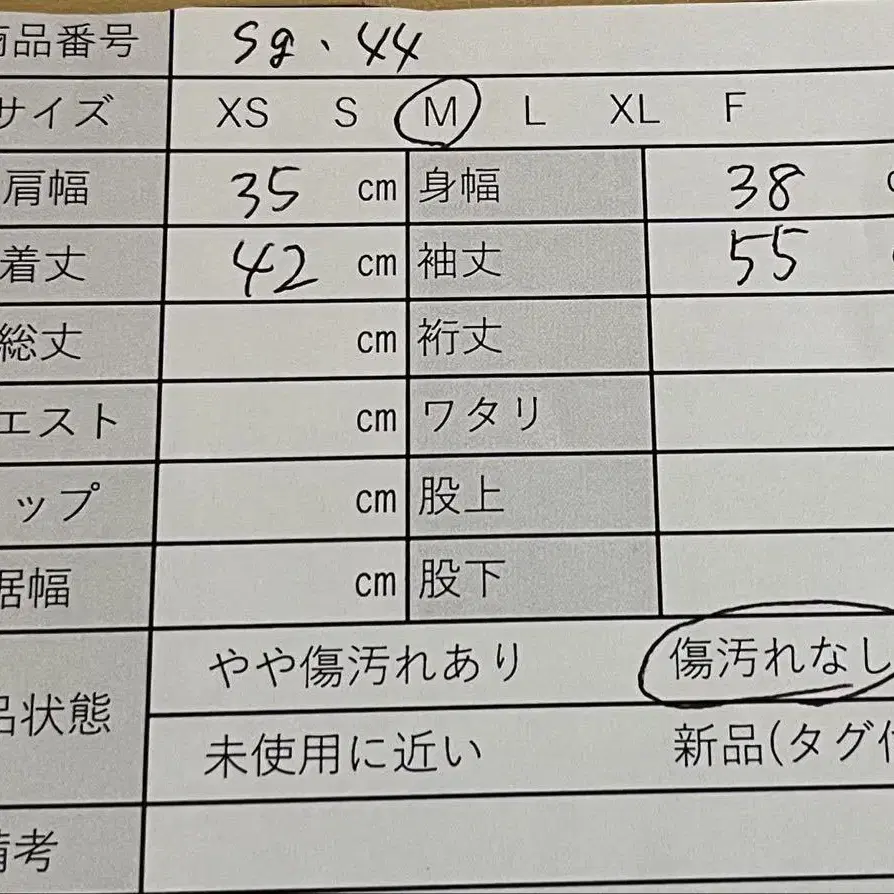 商品番号 Sg、44
サイズ XS S M L XL F
肩幅 35 cm 身幅 38 c
着丈 42 cm 袖丈 55 c
総丈 cm 裄丈
エスト cm ワタリ
ップ cm 股上
裾幅 cm 股下
品状態 やや傷汚れあり 傷汚れなし
未使用に近い 新品(タグ付
備考